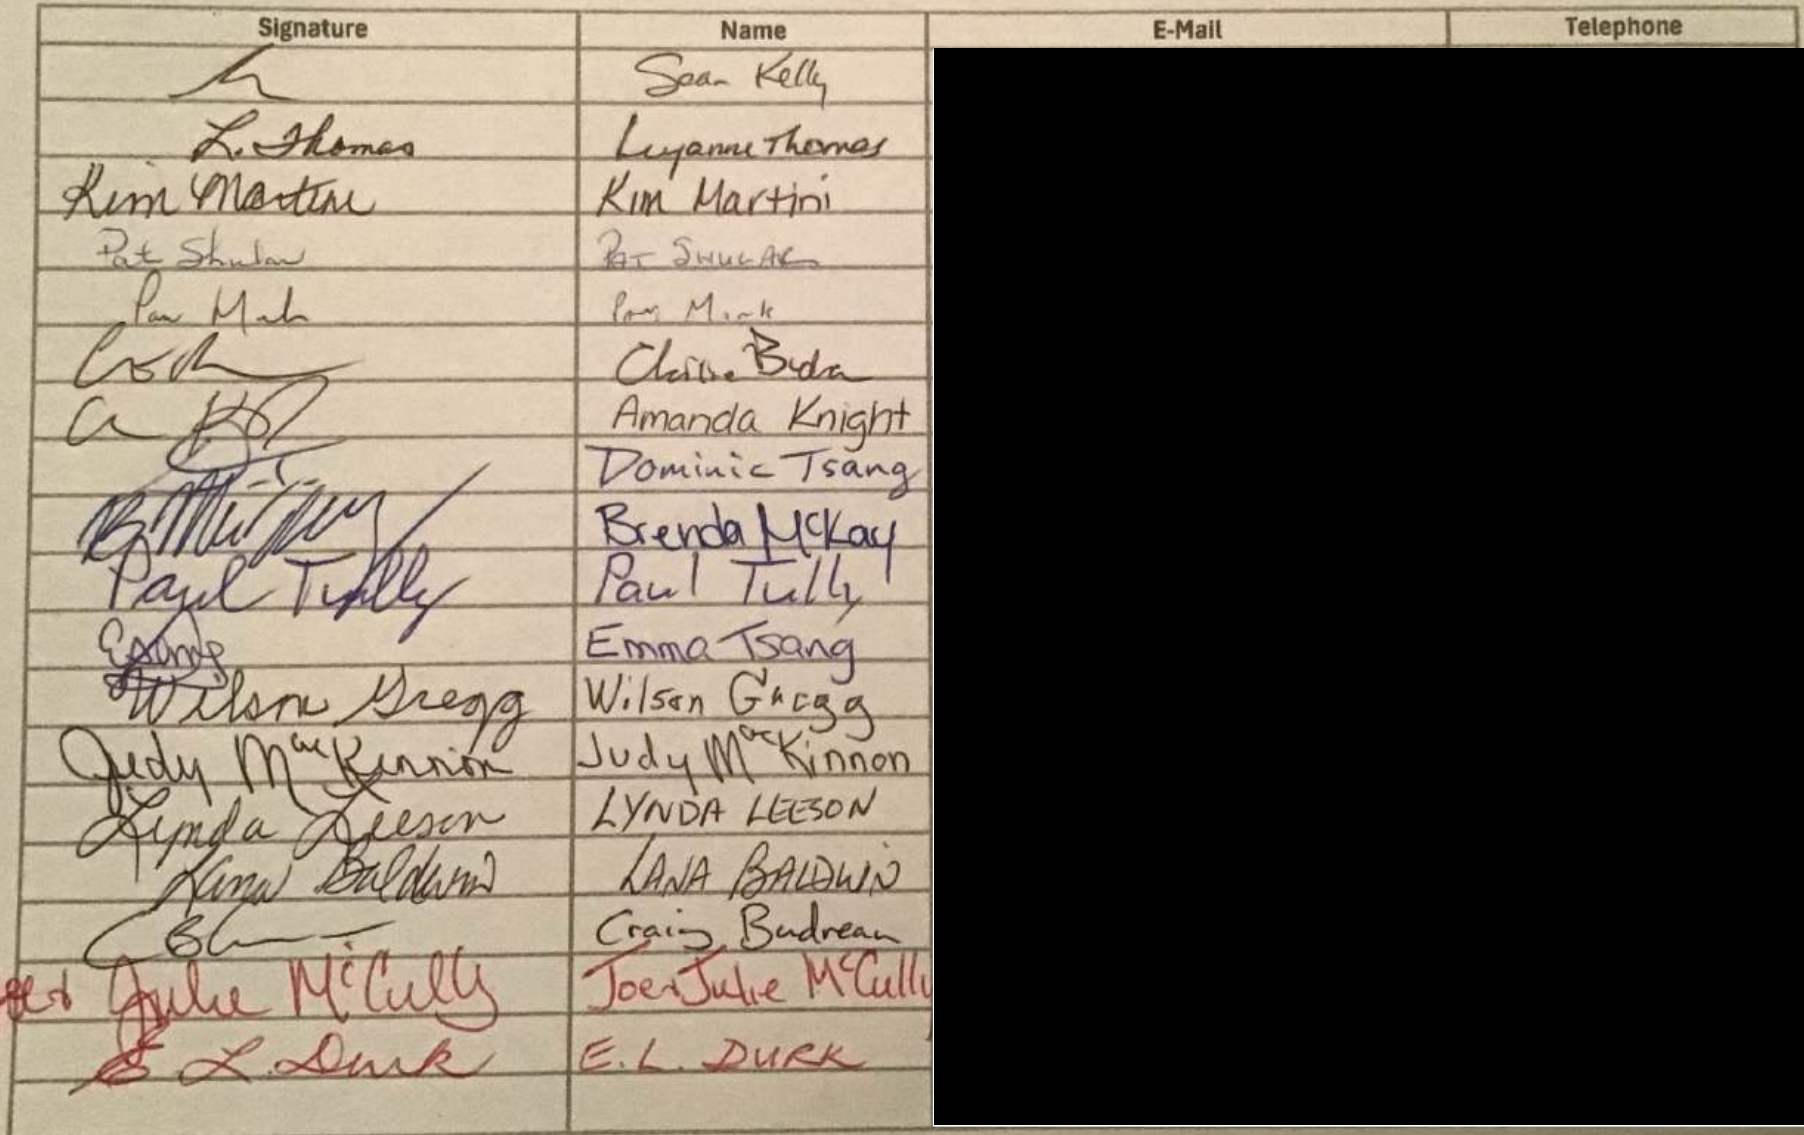 Signature Name E-Mail Telephone
Sean Kelly
L. Thomas Luyanne Thomas
Kim Martini Kim Martini
Pat Shular PAT SHULAR
Pam Mink
Buda
Amanda Knight
Dominic Tsang
Brenda McKay
Paul Tully Paul Tully
Emma Tsang
Wilson Gregg Wilson Gregg
Judy MacKinnon Judy MacKinnon
Lynda Leeson LYNDA LEESON
Lana Baldwin LANA BALDWIN
Craig Budreau
Julie McCully Joe + Julie McCully
E L. Durk E.L. DURK